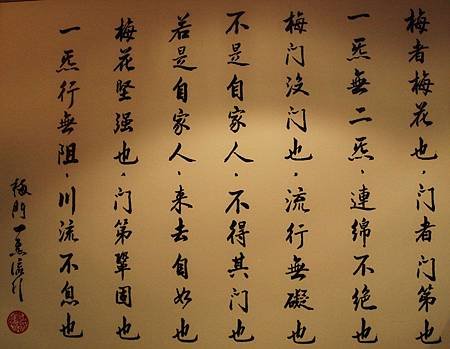 梅者梅花也，门者门第也
一炁無二炁，連綿不绝也
梅门没门也，流行無礙也
不是自家人，不得其门也
若是自家人，来去自如也
梅花堅强也，门第鞏固也
一炁行無阻，川流不息也
梅門一炁